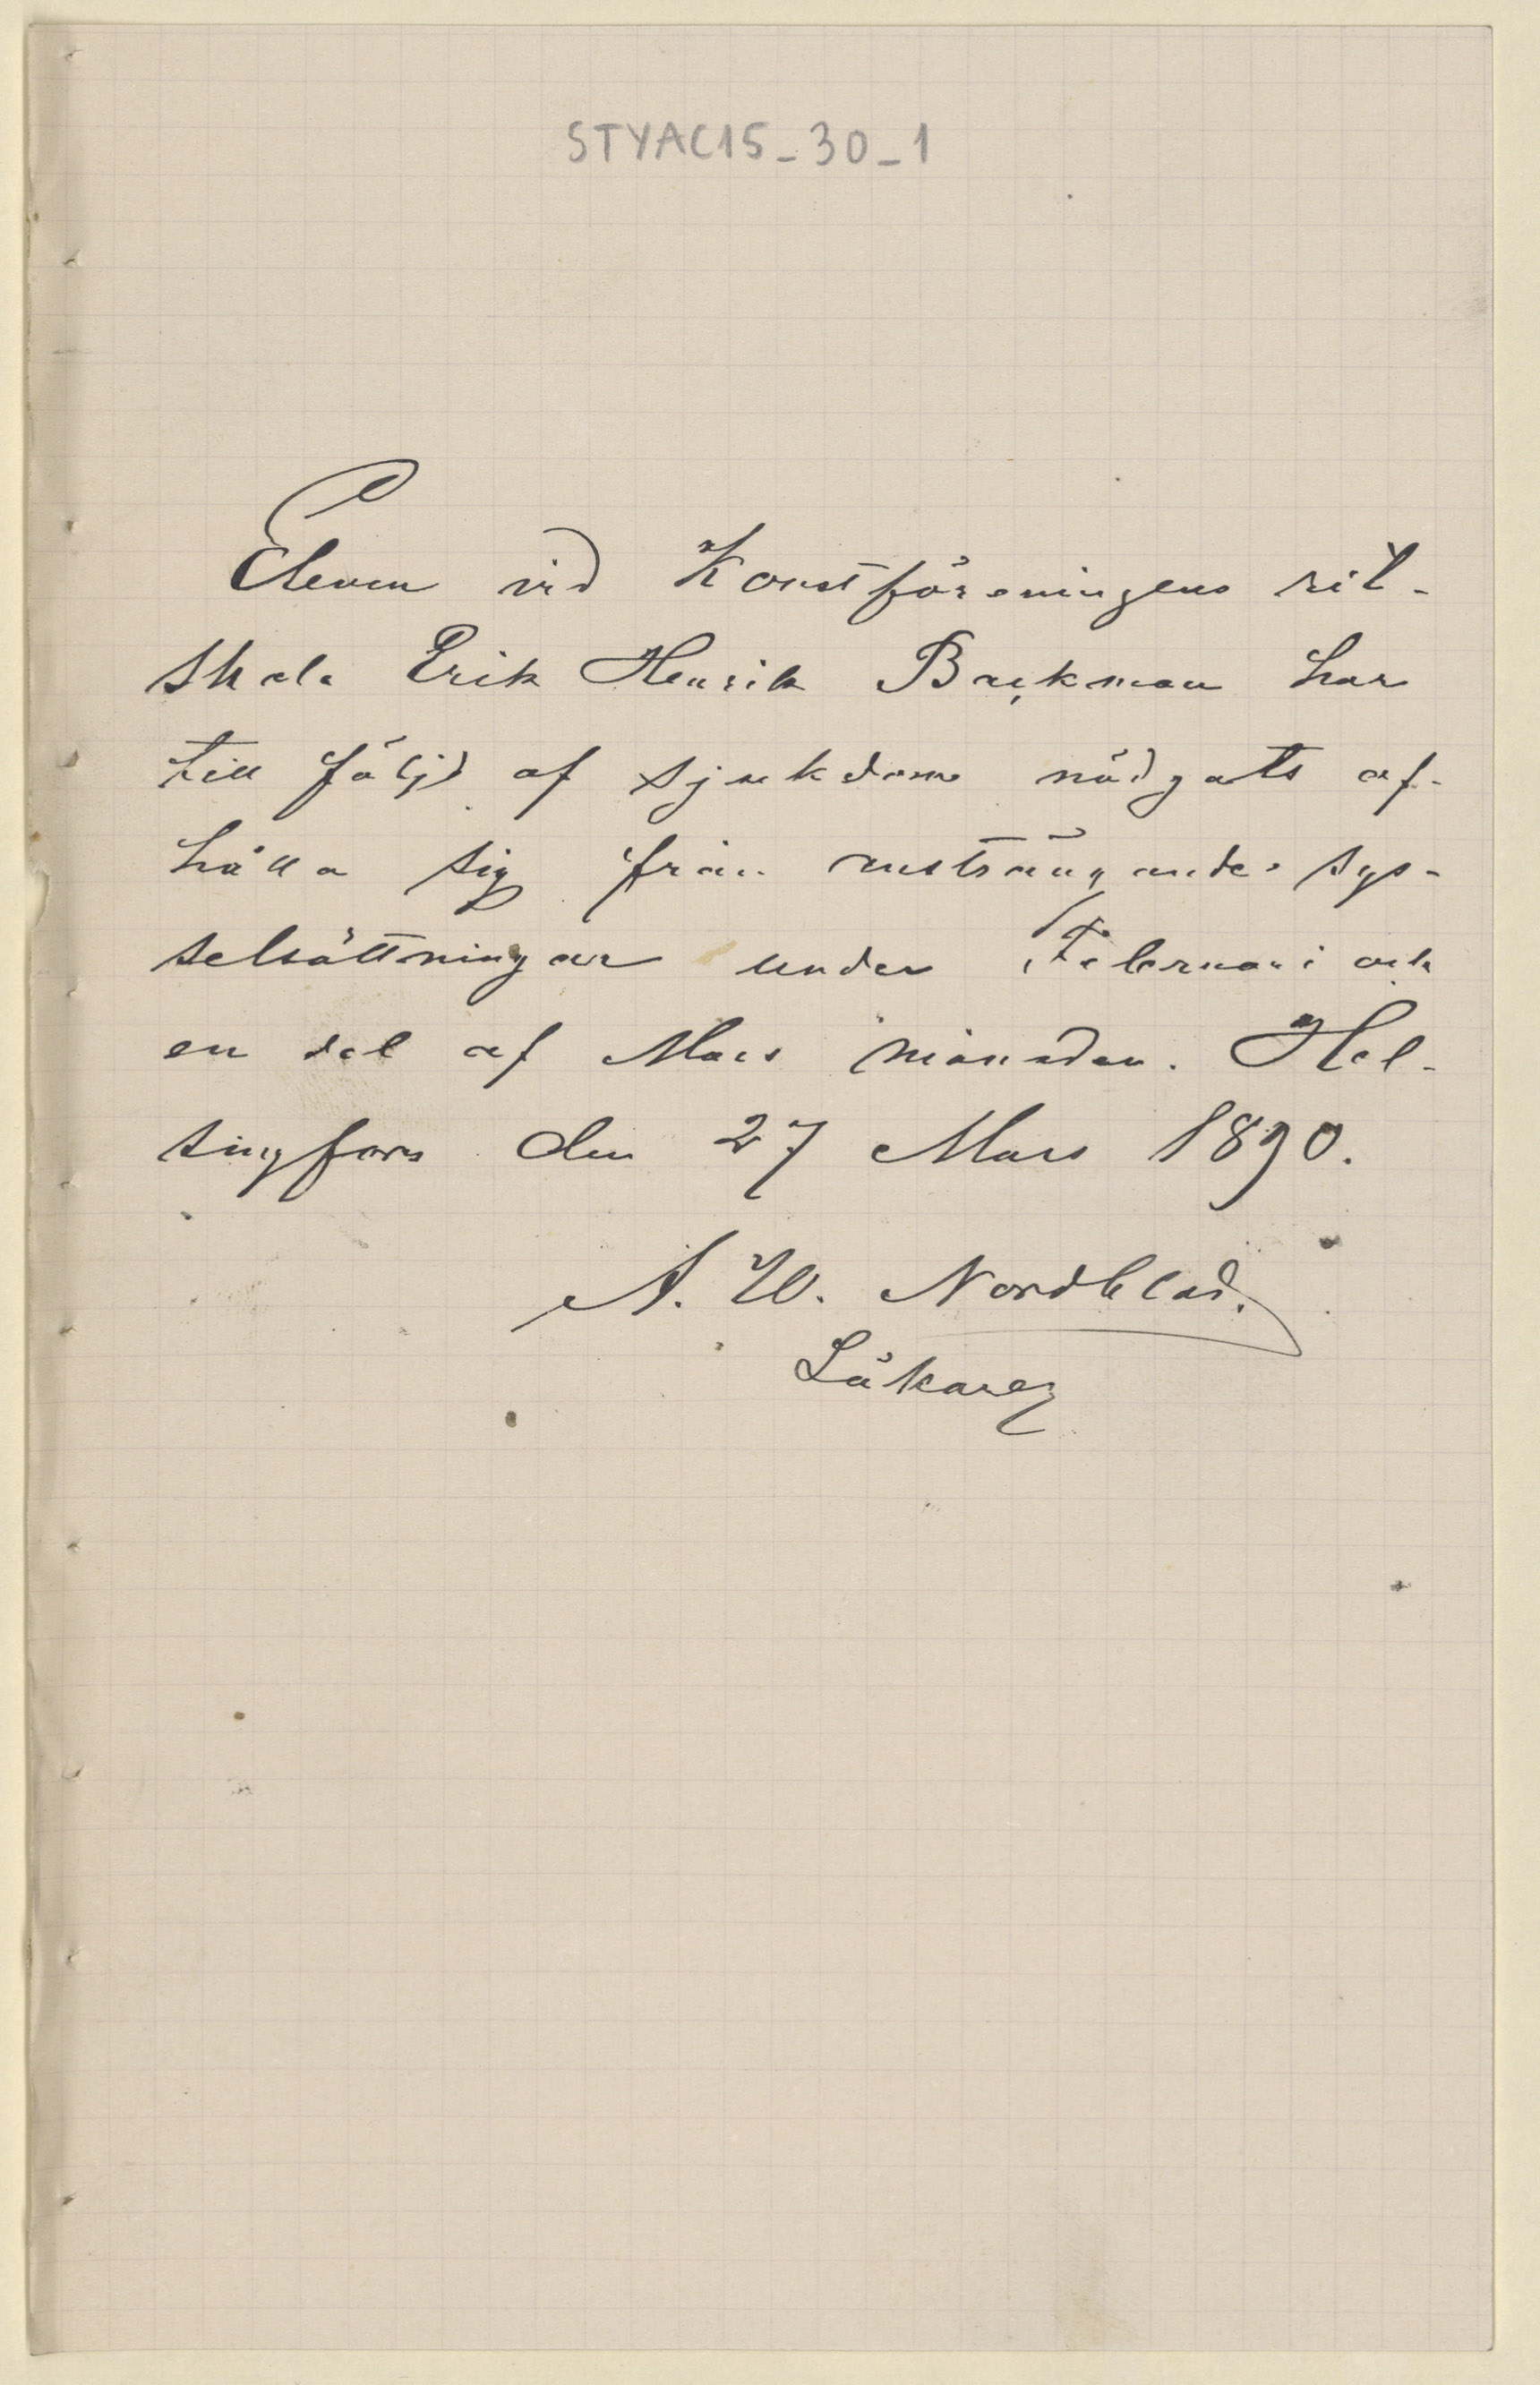 STYAC15_30_1
Eleven vid Konstföreningens rit-
skola Erik Henrik Backman har
till följd af sjukdom nödgats af-
hålla sig från ansträngande sys-
selsättningar under Februari och
en del af Mars månader. Hel-
singfors den 27 Mars 1890.
A. W. Nordblad.
Läkare